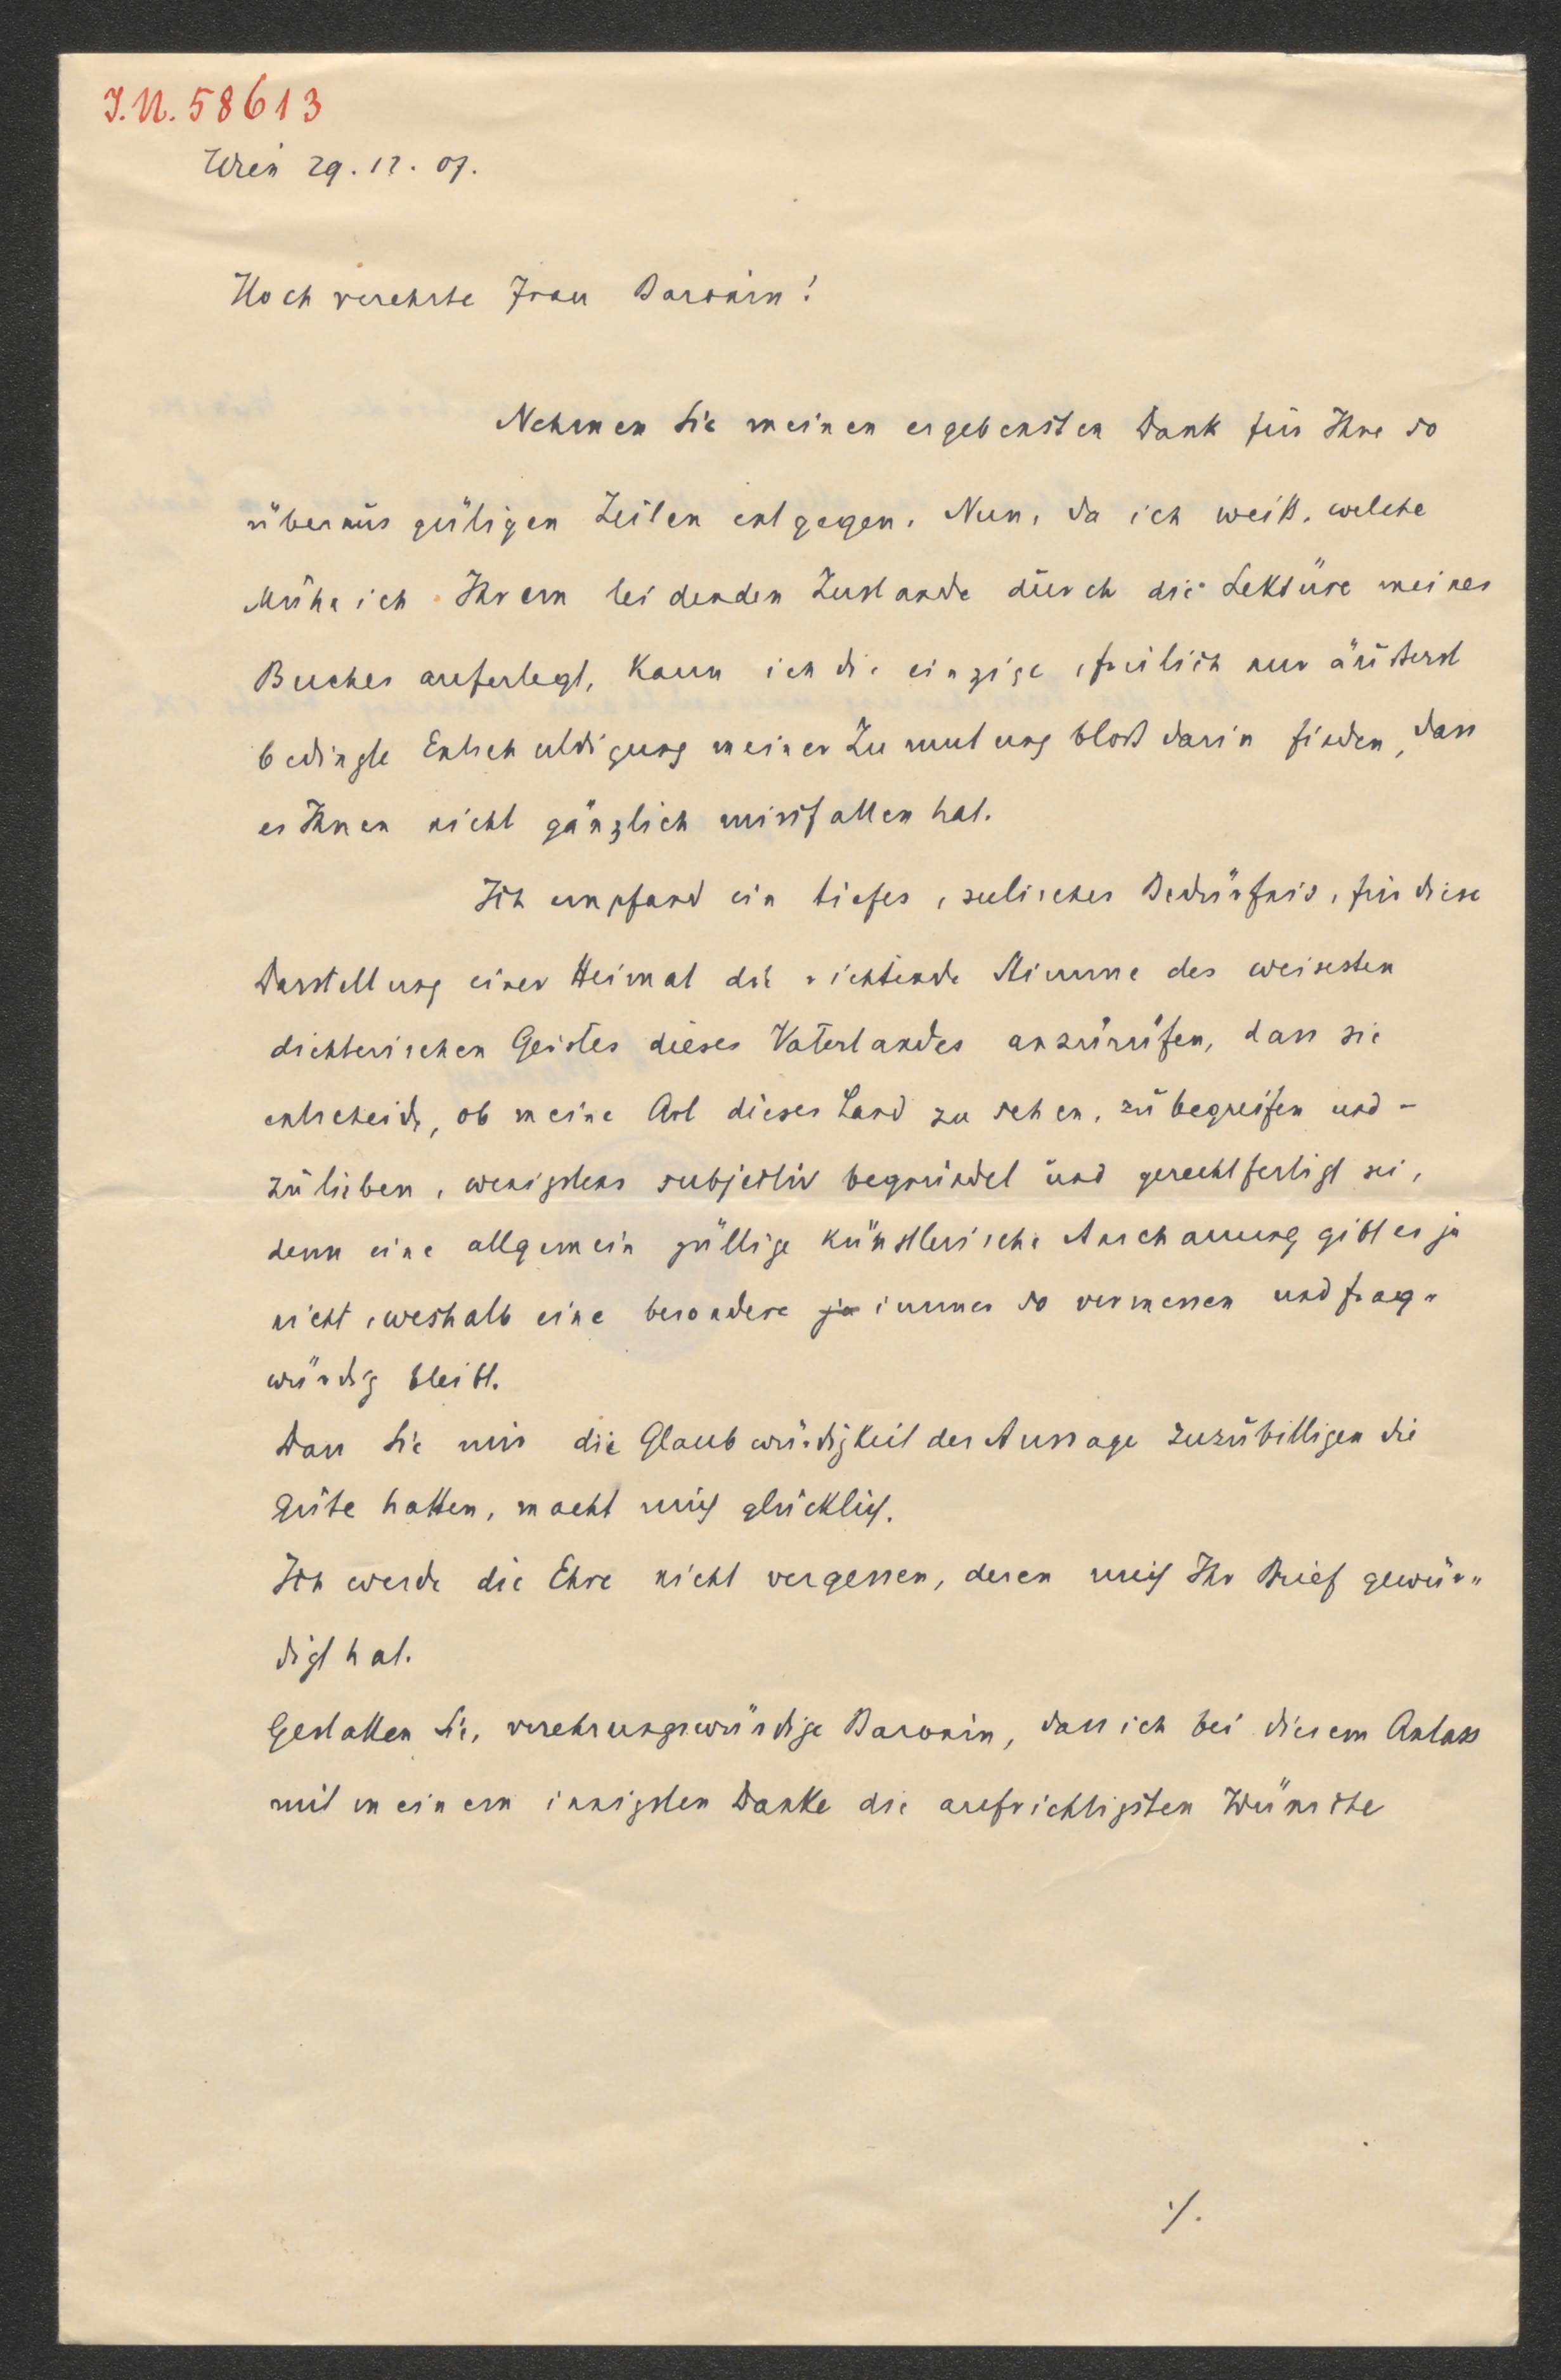 I.N. 58613
Wien 29. 12. 07.
Hochverehrte Frau Baronin!
Nehmen Sie meinen ergebensten Dank für Ihre so
überaus gütigen Zeilen entgegen. Nun, da ich weiß, welche
Mühe ich Ihrem leidenden Zustande durch die Lektüre meines
Buches auferlegt, kann ich die einzige, freilich nur äußerst
bedingte Entschuldigung meiner Zumutung bloß darin finden, dass
es Ihnen nicht gänzlich missfallen hat.
Ich empfand ein tiefes, seelisches Bedürfnis, für diese
Darstellung einer Heimat die richtende Stimme des weisesten
dichterischen Geistes dieses Vaterlandes anzurufen, dass sie
entscheide, ob meine Art dieses Land zu sehen, zu begreifen und –
zu lieben, wenigstens subjectiv begründet und gerechtfertigt sei,
denn eine allgemein gültige künstlerische Anschauung gibt es ja
nicht, weshalb eine besondere ja immer so vermessen und frag-
würdig bleibt.
Dass Sie mir die Glaubwürdigkeit der Aussage zuzubilligen die
Güte hatten, macht mich glücklich.
Ich werde die Ehre nicht vergessen, deren mich Ihr Brief gewür-
digt hat.
Gestatten Sie, verehrungswürdige Baronin, dass ich bei diesem Anlass
mit meinem innigsten Danke die aufrichtigsten Wünsche
./.